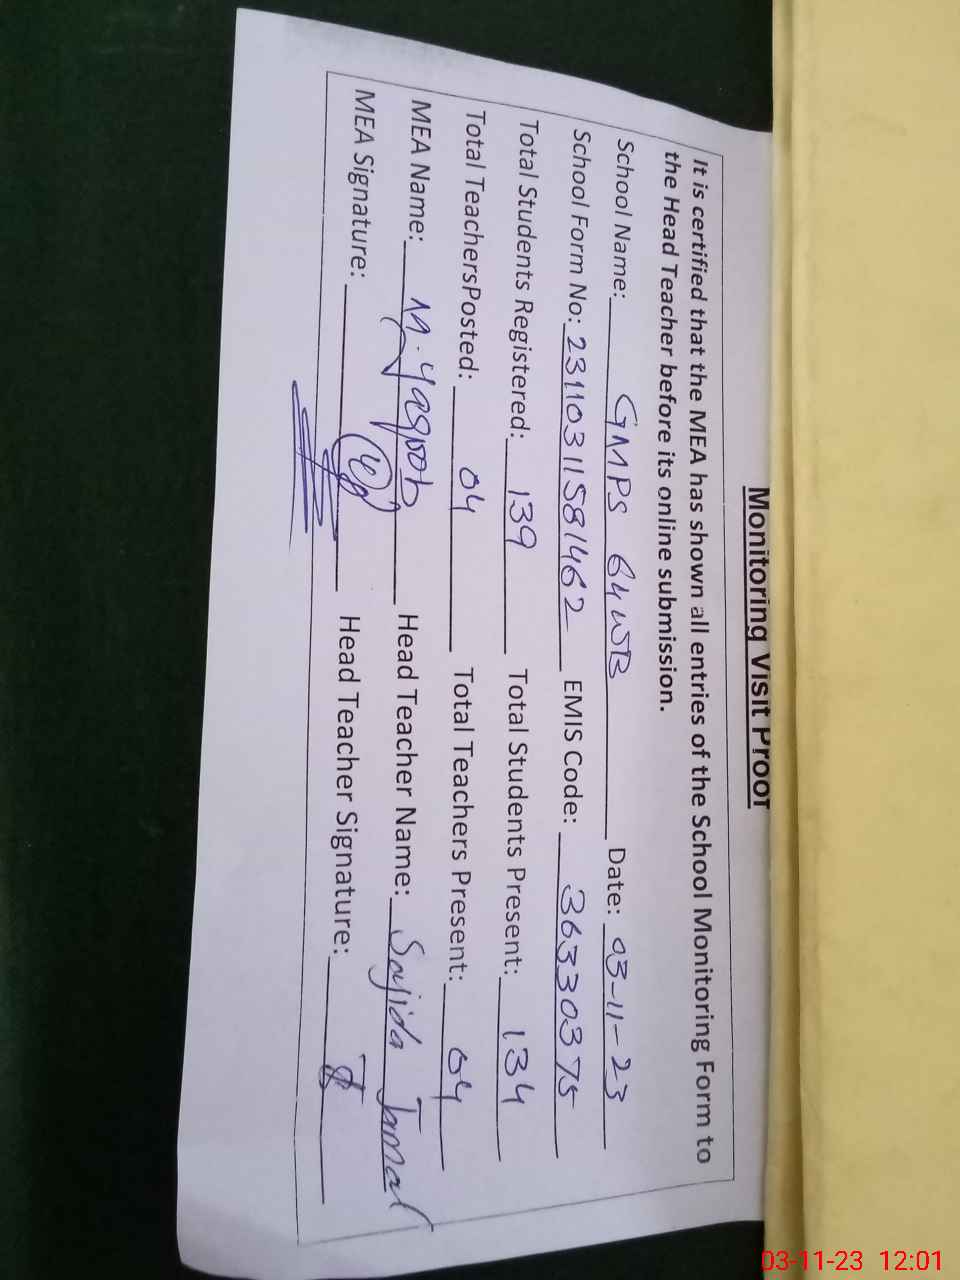 Monitoring Visit Proof
It is certified that the MEA has shown all entries of the School Monitoring Form to
the Head Teacher before its online submission.
School Name: GMPS 64 WB Date: 03-11-23
School Form No: 23110311581462 EMIS Code: 36330375
Total Students Registered: 139 Total Students Present: 134
Total TeachersPosted: 04 Total Teachers Present: 04
MEA Name: M. Yaqoob Head Teacher Name: Sajida Jamal
MEA Signature: Head Teacher Signature:
03-11-23 12:01